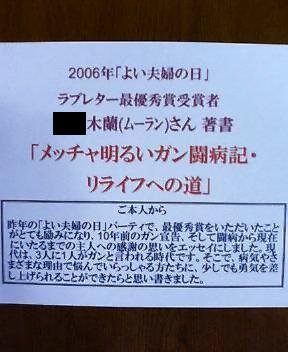 2006年「よい夫婦の日」
ラブレター最優秀賞受賞者
木蘭(ムーラン)さん 著書
「メッチャ明るいガン闘病記・
リライフへの道」
ご本人から
昨年の「よい夫婦の日」パーティで、最優秀賞をいただいたこと
がとても励みになり、10年前のガン宣告、そして闘病から現在
にいたるまでの主人への感謝の思いをエッセイにしました。現
代は、3人に1人がガンと言われる時代です。そこで、病気やさ
まざまな理由で悩んでいらっしゃる方たちに、少しでも勇気を差
し上げられることができたらと思い書きました。